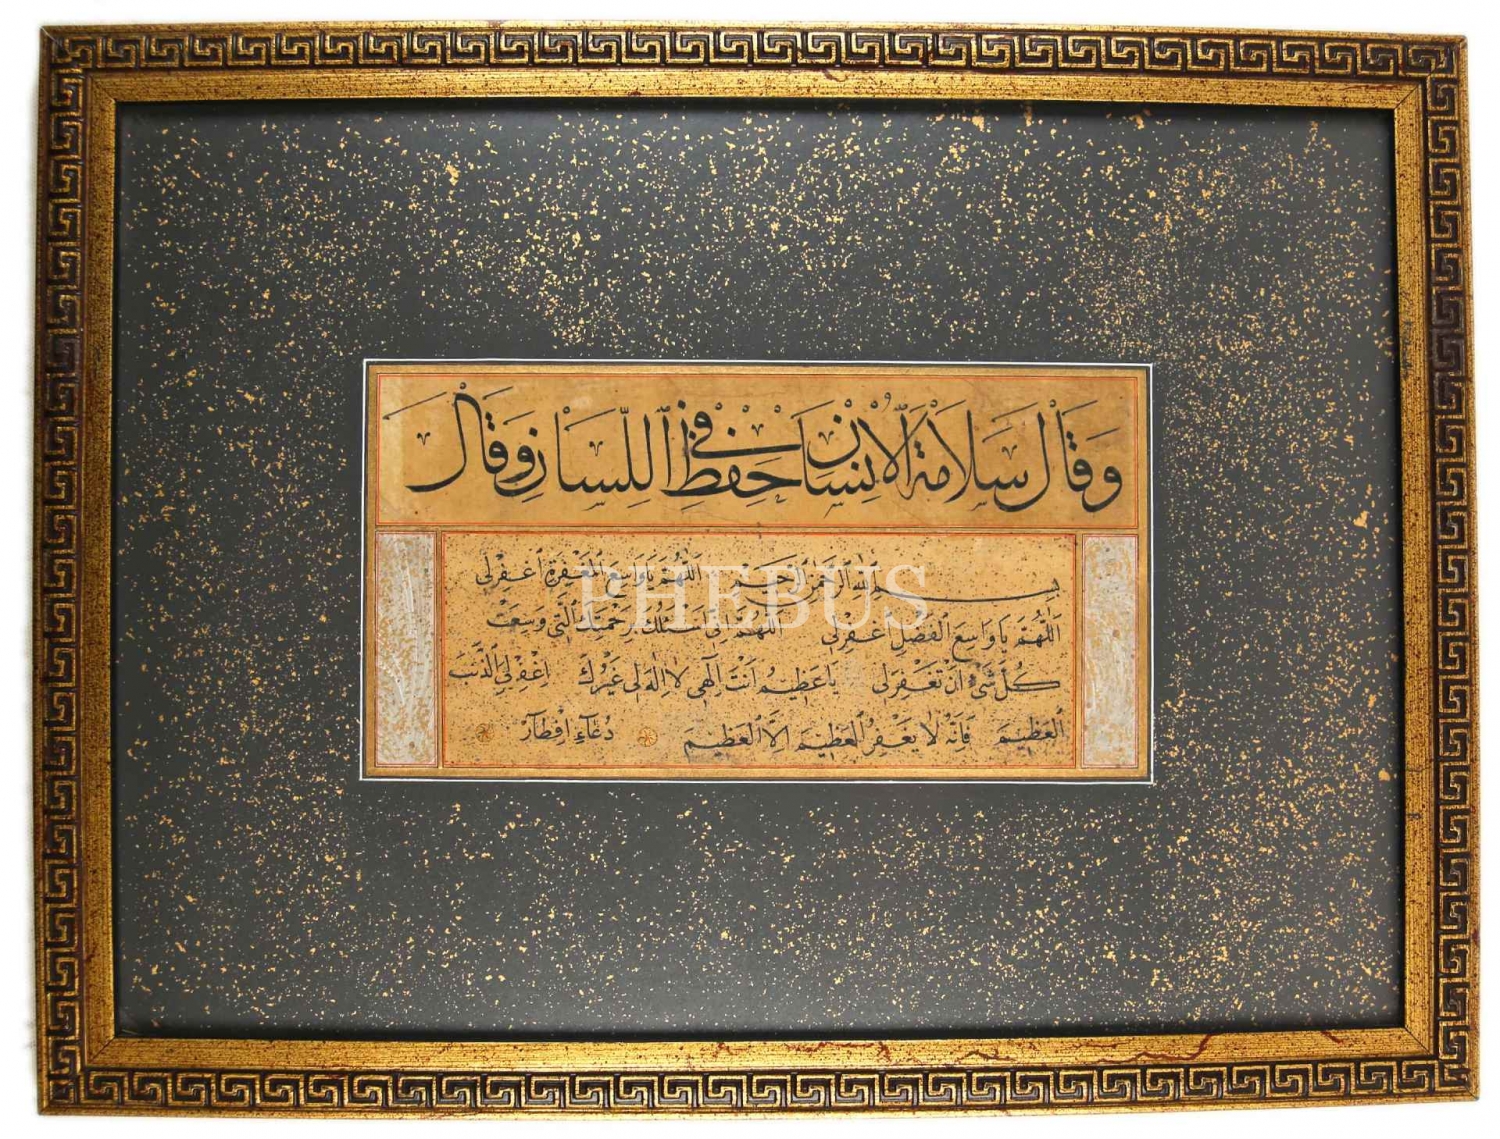 وَقَالَ سَلَامَةُ الْاِنْسَانِ فِي حِفْظِ اللِّسَانِ وَقَالَ
بِسْمِ اللهِ الرَّحْمٰنِ الرَّحِيمِ اَللّٰهُمَّ يَا وَاسِعَ الْمَغْفِرَةِ اغْفِرْلِى
اَللّٰهُمَّ يَا وَاسِعَ الْفَضْلِ اغْفِرْلِى اَللّٰهُمَّ اِنِّى اَسْئَلُكَ بِرَحْمَتِكَ الَّتِى وَسِعَتْ
كُلَّ شَىْءٍ اَنْ تَغْفِرَلِى يَا عَظِيمُ اَنْتَ اِلٰهِى لَا اِلٰهَ لِى غَيْرُكَ اِغْفِرْلِىَ الذَّنْبَ
الْعَظِيمَ فَاِنَّهُ لَا يَغْفِرُ الْعَظِيمَ اِلَّا الْعَظِيمُ دُعَاءِ افْطَارْ
PHEBUS